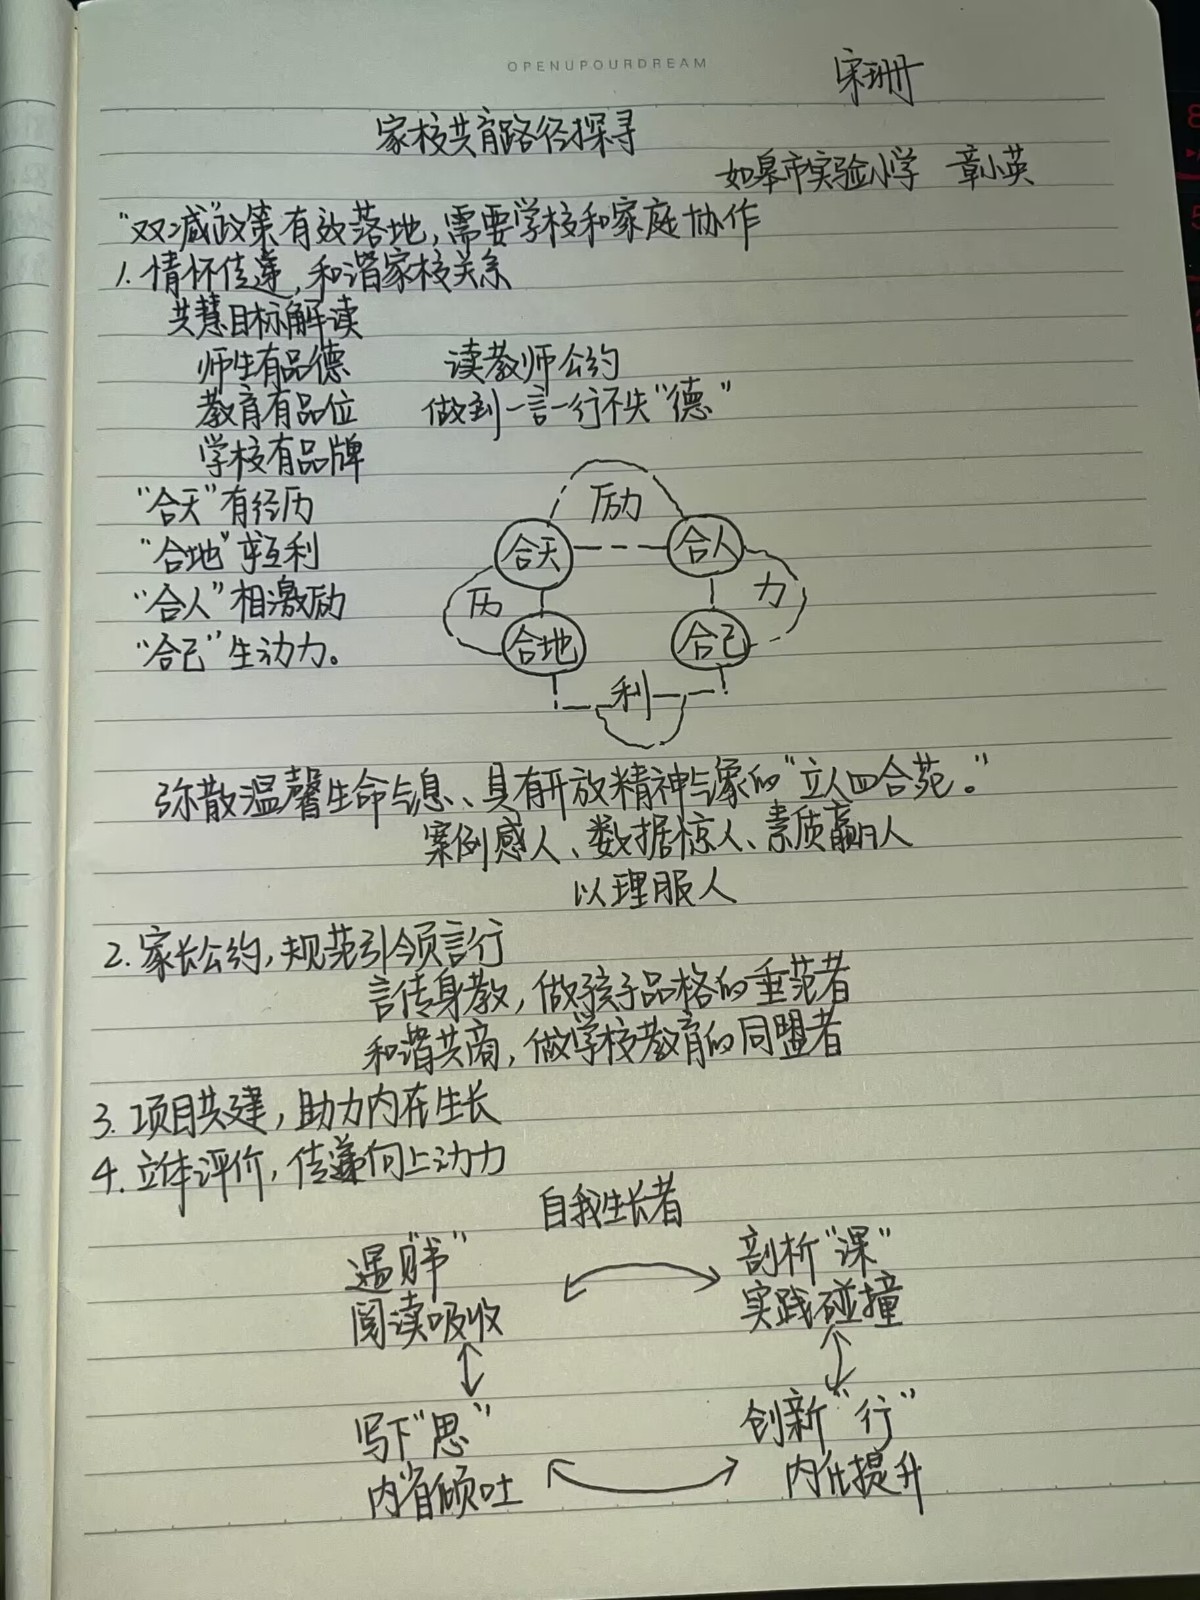 OPENUPOURDREAM
宋珊
家校共育路径探寻
如皋市实验小学 章小英
“双减”政策有效落地，需要学校和家庭协作
1. 情怀传递，和谐家校关系
共慧目标解读
师生有品德 读教师公约
教育有品位 做到一言一行不失“德”
学校有品牌
“合天”有经历
“合地”享互利
“合人”相激励
“合己”生动力。
励
合天 合人
历 力
合地 合己
利
弥散温馨生命气息、具有开放精神气象的“立人四合苑。”
案例感人、数据惊人、素质赢人
以理服人
2. 家长公约，规范引领言行
言传身教，做孩子品格的垂范者
和谐共商，做学校教育的同盟者
3. 项目共建，助力内在生长
4. 立体评价，传递向上动力
自我生长者
遇见“书” 剖析“课”
阅读吸收 实践碰撞
写下“思” 创新“行”
内省倾吐 内化提升